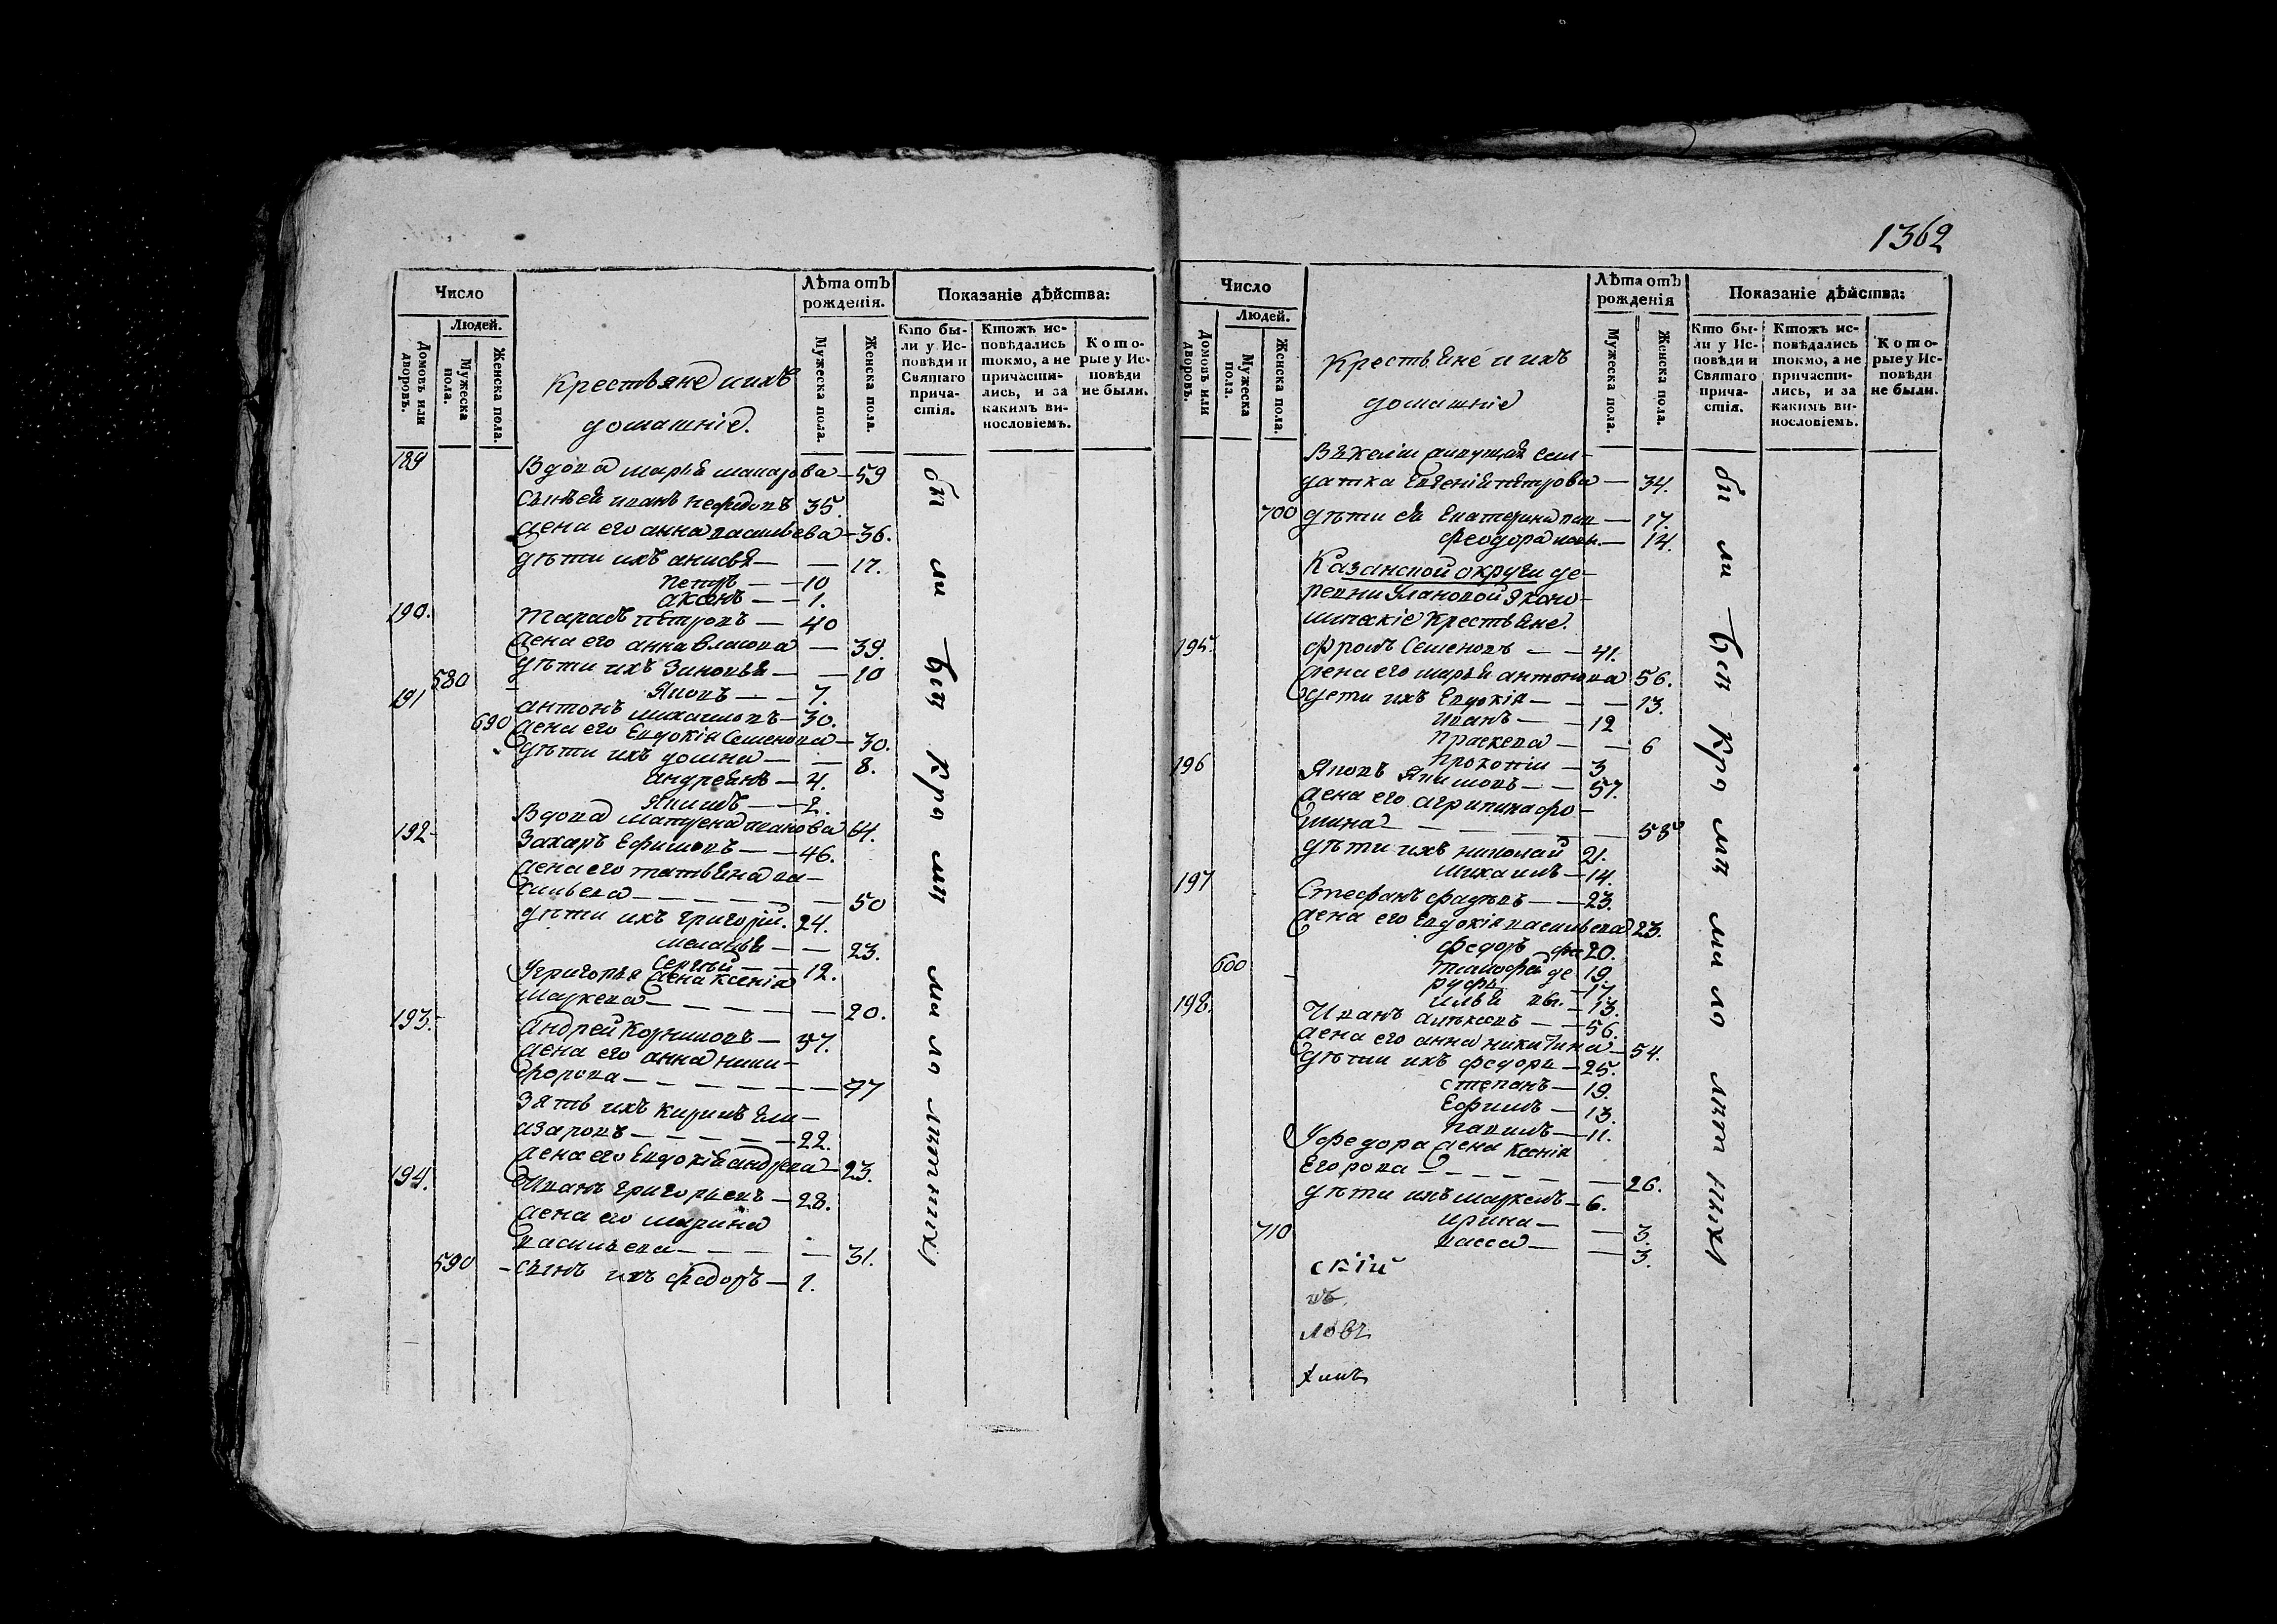 1362
Число
Людей.
Домовъ или дворовъ.
Мужеска пола.
Женска пола.
Крестьяне и ихъ
домашніе.
Лѣта отъ рожденія.
Мужеска пола.
Женска пола.
Показаніе дѣйства:
Кто бы-
ли у Ис-
повѣди и
Святаго
прича-
стія.
Ктожъ ис-
повѣдались
токмо, а не
причасти-
лись, и за
какимъ ви-
нословіемъ.
Кото-
рые у Ис-
повѣди
не были.
189 Вдова марья макарова — 59
Сынъ ей иванъ нефедовъ 35.
жена его анна васильева — 36.
дѣти ихъ анисья — — 17.
петръ — — 10
аксенъ — — 1.
190. Тарасъ петровъ — 40
жена его анна власова — 39.
дѣти ихъ Зиновья — — 10
580 Яковъ — — 7.
191 антонъ михаиловъ — 30.
690 жена его Евдокія Семенова — 30.
дѣти ихъ домна — — 8.
андреянъ — 4.
Якимъ — — 2.
Вдова матрена иванова 64.
192 Захаръ Ефимовъ — — 46.
жена его татьяна ва-
сильева — — — — 50
дѣти ихъ григорій. 24.
меланья — — 23.
Сергѣй — — 12.
У григорья жена Ксенія
маркова — — — — 20.
193. андрей Корниловъ — 37.
жена его анна ники-
форова — — — — 47
Зять ихъ кирилъ Ели-
азаровъ — — — — 22.
жена его Евдокія андреева — 23.
194. Иванъ григорьевъ — 28.
жена его марина
васильева — — — — 31.
590 — сынъ ихъ федоръ — 1.
бы ли Всѣ кро мѣ ма ло лѣт ныхъ
Число
Людей.
Домовъ или дворовъ.
Мужеска пола.
Женска пола.
Крестьяне и ихъ
домашніе
Лѣта отъ рожденія
Мужеска пола.
Женска пола.
Показаніе дѣйства:
Кто бы-
ли у Ис-
повѣди и
Святаго
прича-
стія.
Ктожъ ис-
повѣдались
токмо, а не
причасти-
лись, и за
какимъ ви-
нословіемъ.
Кото-
рые у Ис-
повѣди
не были.
Въ келіи живущая сол-
датка Евгенія петрова — 34.
700 дѣти ея Екатерина — 17.
феодора — 14.
Казанской округи де-
ревни Улановой Эконо-
мическіе Крестьяне.
195. фролъ Семеновъ — — 41.
жена его марья антонова 56.
дѣти ихъ Евдокія — — — 13.
иванъ — — 12
Праскева — — 6
Прокопій — 3
196 Яковъ Якимовъ — — 57.
жена его агрипина фо-
мина — — — — 58
дѣти ихъ николай 21.
михаилъ — 14.
197 Стефанъ фадѣевъ — — 23.
жена его Евдокія васильева 23.
федоръ фа 20.
600 тимофей де 19.
руфъ — 17.
илья вы. — 13.
198. Иванъ алексѣевъ — — 56.
жена его анна никитина — 54.
дѣти ихъ федоръ — 25.
степанъ — 19.
Ефимъ — 13.
павилъ — 11.
У федора жена Ксенія
Егорова — — — — 26.
дѣти ихъ маркелъ — 6.
710 ирина — — 3.
васса — — 3.
скій
въ
ловъ
бы ли Всѣ кро мѣ ма ло лѣт ныхъ